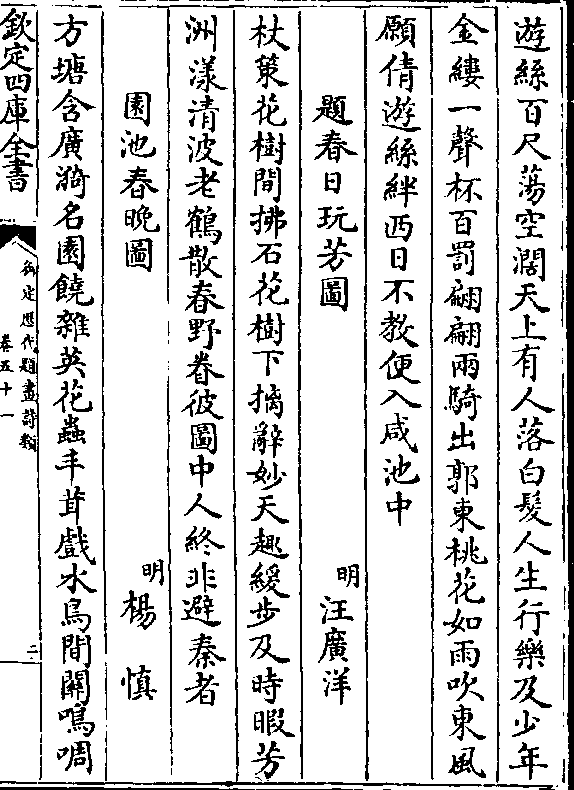 遊絲百尺蕩空濶天上有人落白髮人生行樂及少年
金縷一聲杯百罰翩翩兩騎出郭東桃花如雨吹東風
願倩遊絲絆西日不教便入咸池中
題春日玩芳圖
明汪廣洋
杖策花樹間拂石花樹下摛辭妙天趣緩步及時暇芳
洲漾清波老鶴散春野眷彼圖中人終非避秦者
園池春晩圖
明楊慎
方塘含廣漪名園饒雜英花蟲丰茸戲水鳥間關鳴啁
欽定四庫全書
御定歷代題畫詩類
卷五十一
二